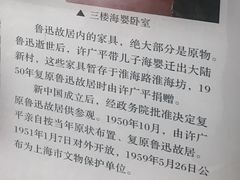 ▲ 三楼海婴卧室
鲁迅故居内的家具，绝大部分是原物。
鲁迅逝世后，许广平带儿子海婴迁出大陆
新村，这些家具暂存于淮海路淮海坊，19
50年复原鲁迅故居时由许广平捐赠。
新中国成立后，经政务院批准决定复
原鲁迅故居供参观。1950年10月，由许广
平亲自按当年原状布置、复原鲁迅故居。
1951年1月7日对外开放，1959年5月26日公
布为上海市文物保护单位。